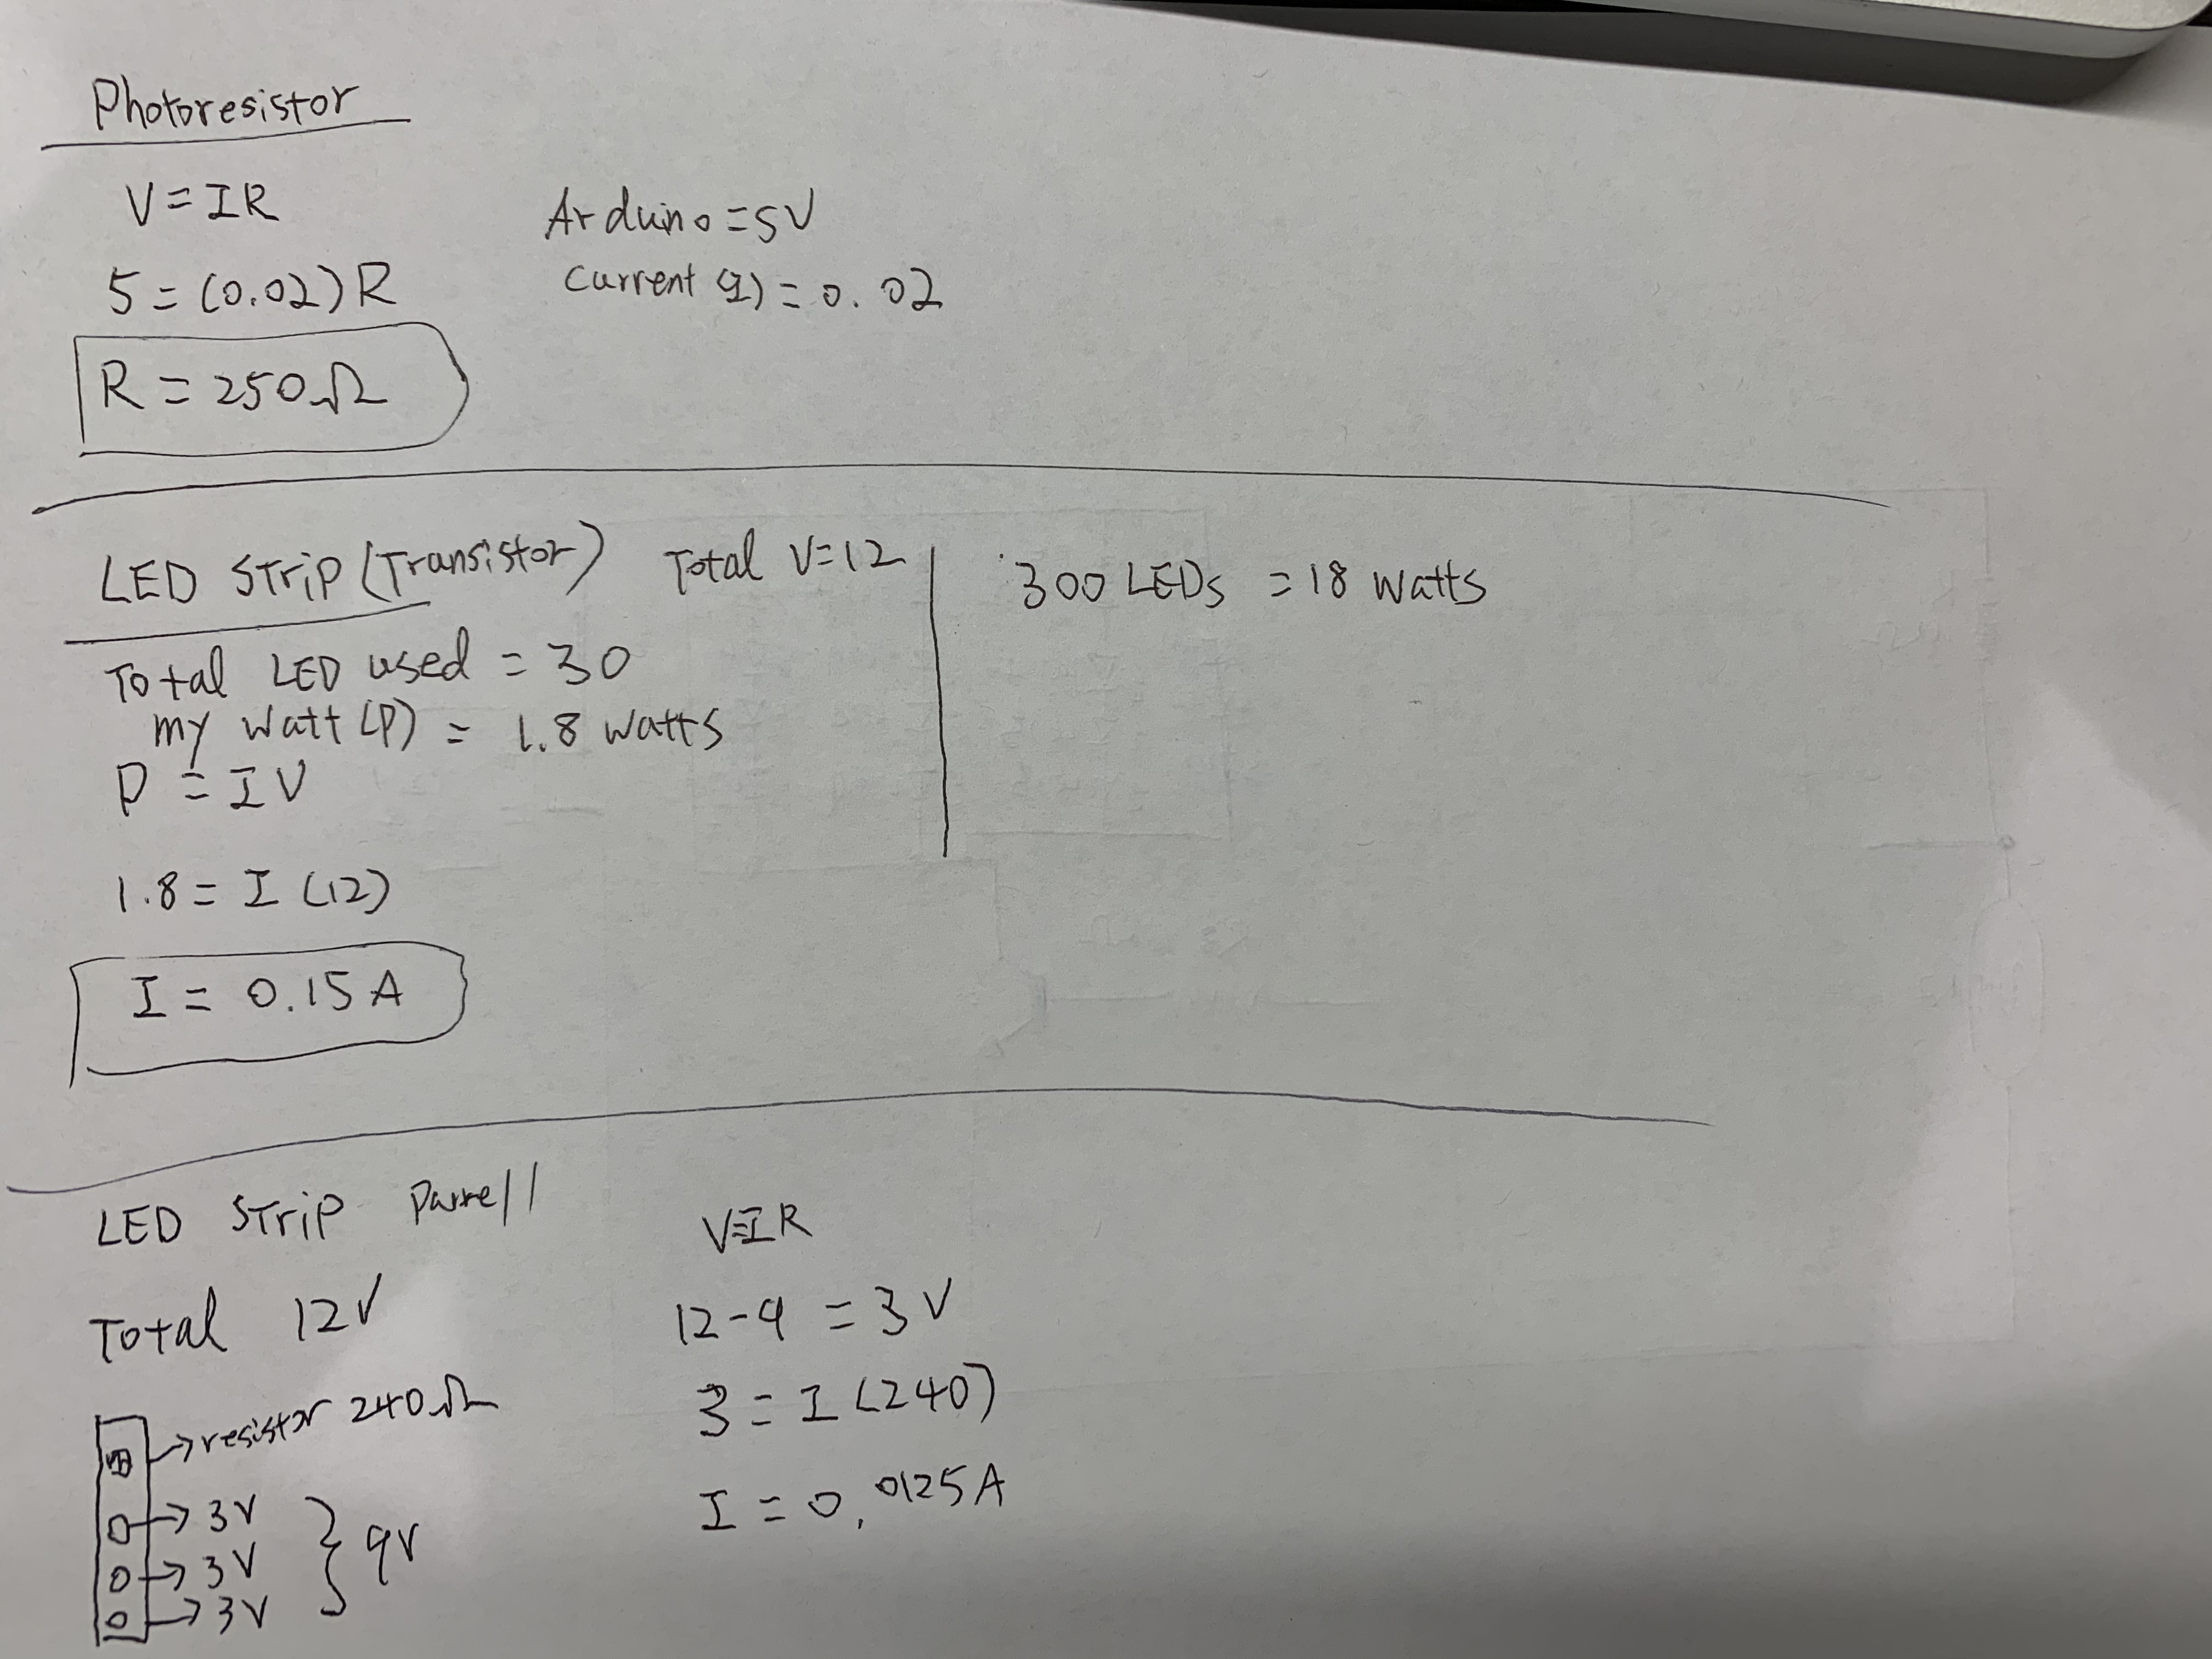 Photoresistor
V = IR
Arduino = 5V
5 = (0.02) R
Current (I) = 0.02
R = 250Ω
LED Strip (Transistor)
Total V=12
300 LEDs = 18 watts
Total LED used = 30
my watt (P) = 1.8 watts
P = IV
1.8 = I (12)
I = 0.15 A
LED Strip Parrell
V=IR
Total 12V
12-9 = 3V
resistor 240Ω
3 = I (240)
I = 0.0125A
3V
3V
3V
9V